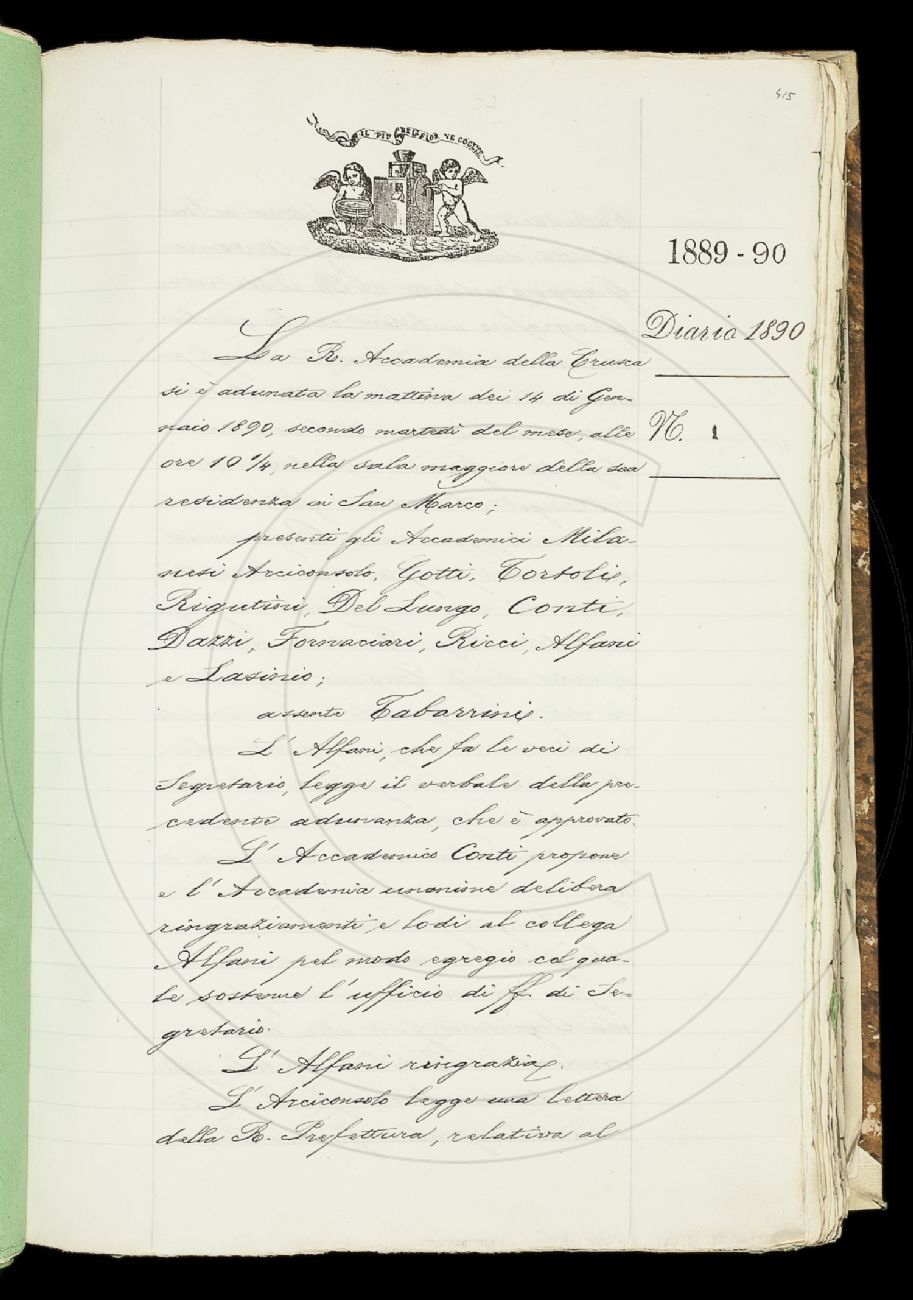 415
IL PIÙ BEL FIOR NE COGLIE
1889 - 90
Diario 1890
N. 1
La R. Accademia della Crusca
si è adunata la mattina dei 14 di Gen-
naio 1890, secondo martedì del mese, alle
ore 10 1/4, nella sala maggiore della sua
residenza in San Marco;
presenti gli Accademici Mila-
nesi Arciconsolo, Gotti, Tortoli,
Rigutini, Del Lungo, Conti,
Dazzi, Fornaciari, Ricci, Alfani
e Lasinio;
assente Tabarrini.
L' Alfani, che fa le veci di
Segretario, legge il verbale della pre-
cedente adunanza, che è approvato.
L' Accademico Conti propone
e l' Accademia unanime delibera
ringraziamenti e lodi al collega
Alfani pel modo egregio col qua-
le sostenne l' ufficio di ff. di Se-
gretario.
L' Alfani ringrazia.
L' Arciconsolo legge una lettera
della R. Prefettura, relativa al